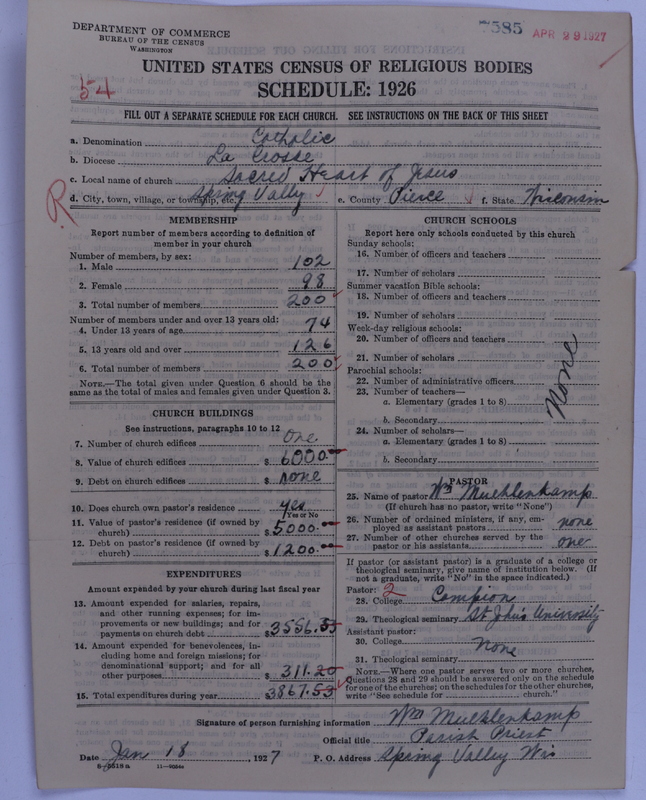 DEPARTMENT OF COMMERCE
BUREAU OF THE CENSUS
WASHINGTON
7585
APR 29 1927
54
UNITED STATES CENSUS OF RELIGIOUS BODIES
SCHEDULE: 1926
FILL OUT A SEPARATE SCHEDULE FOR EACH CHURCH. SEE INSTRUCTIONS ON THE BACK OF THIS SHEET
a. Denomination Catholic
b. Diocese La Crosse
c. Local name of church Sacred Heart of Jesus
d. City, town, village, or township, etc. Spring Vally e. County Pierce f. State Wisconsin
R
MEMBERSHIP
Report number of members according to definition of
member in your church
Number of members, by sex:
1. Male 102
2. Female 98
3. Total number of members 200
Number of members under and over 13 years old:
4. Under 13 years of age 74
5. 13 years old and over 126
6. Total number of members 200
NOTE.—The total given under Question 6 should be the
same as the total of males and females given under Question 3.
CHURCH BUILDINGS
See instructions, paragraphs 10 to 12
7. Number of church edifices One
8. Value of church edifices $ 6000.00
9. Debt on church edifices $ none
10. Does church own pastor's residence yes
Yes or No
11. Value of pastor's residence (if owned by
church) $ 5000.00
12. Debt on pastor's residence (if owned by
church) $ 1200.00
EXPENDITURES
Amount expended by your church during last fiscal year
13. Amount expended for salaries, repairs,
and other running expenses; for im-
provements or new buildings; and for
payments on church debt $ 3556.33
14. Amount expended for benevolences, in-
cluding home and foreign missions; for
denominational support; and for all
other purposes $ 311.20
15. Total expenditures during year $ 3867.53
CHURCH SCHOOLS
Report here only schools conducted by this church
Sunday schools:
16. Number of officers and teachers
17. Number of scholars
Summer vacation Bible schools:
18. Number of officers and teachers
19. Number of scholars
Week-day religious schools:
20. Number of officers and teachers
21. Number of scholars
Parochial schools:
22. Number of administrative officers
23. Number of teachers—
a. Elementary (grades 1 to 8)
b. Secondary
24. Number of scholars—
a. Elementary (grades 1 to 8)
b. Secondary
None
PASTOR
25. Name of pastor Wm Muehlenkamp
(If church has no pastor, write "None")
26. Number of ordained ministers, if any, em-
ployed as assistant pastors none
27. Number of other churches served by the
pastor or his assistants one
If pastor (or assistant pastor) is a graduate of a college or
theological seminary, give name of institution below. (If
not a graduate, write "No" in the space indicated.)
Pastor: 2
28. College Campion
29. Theological seminary St John's University
Assistant pastor:
30. College None
31. Theological seminary
NOTE.—Where one pastor serves two or more churches,
Questions 28 and 29 should be answered only on the schedule
for one of the churches; on the schedules for the other churches,
write "See schedule for church."
Signature of person furnishing information Wm Muehlenkamp
Official title Parish Priest
Date Jan 18, 1927 P. O. Address Spring Valley Wis